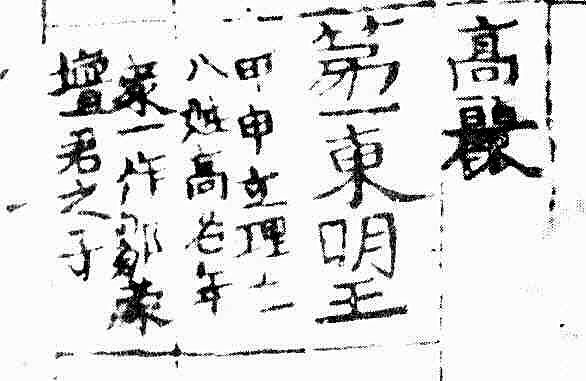 高麗
第一東明王
甲申立理
八姓高名
蒙一作鄒蒙
壇君之子